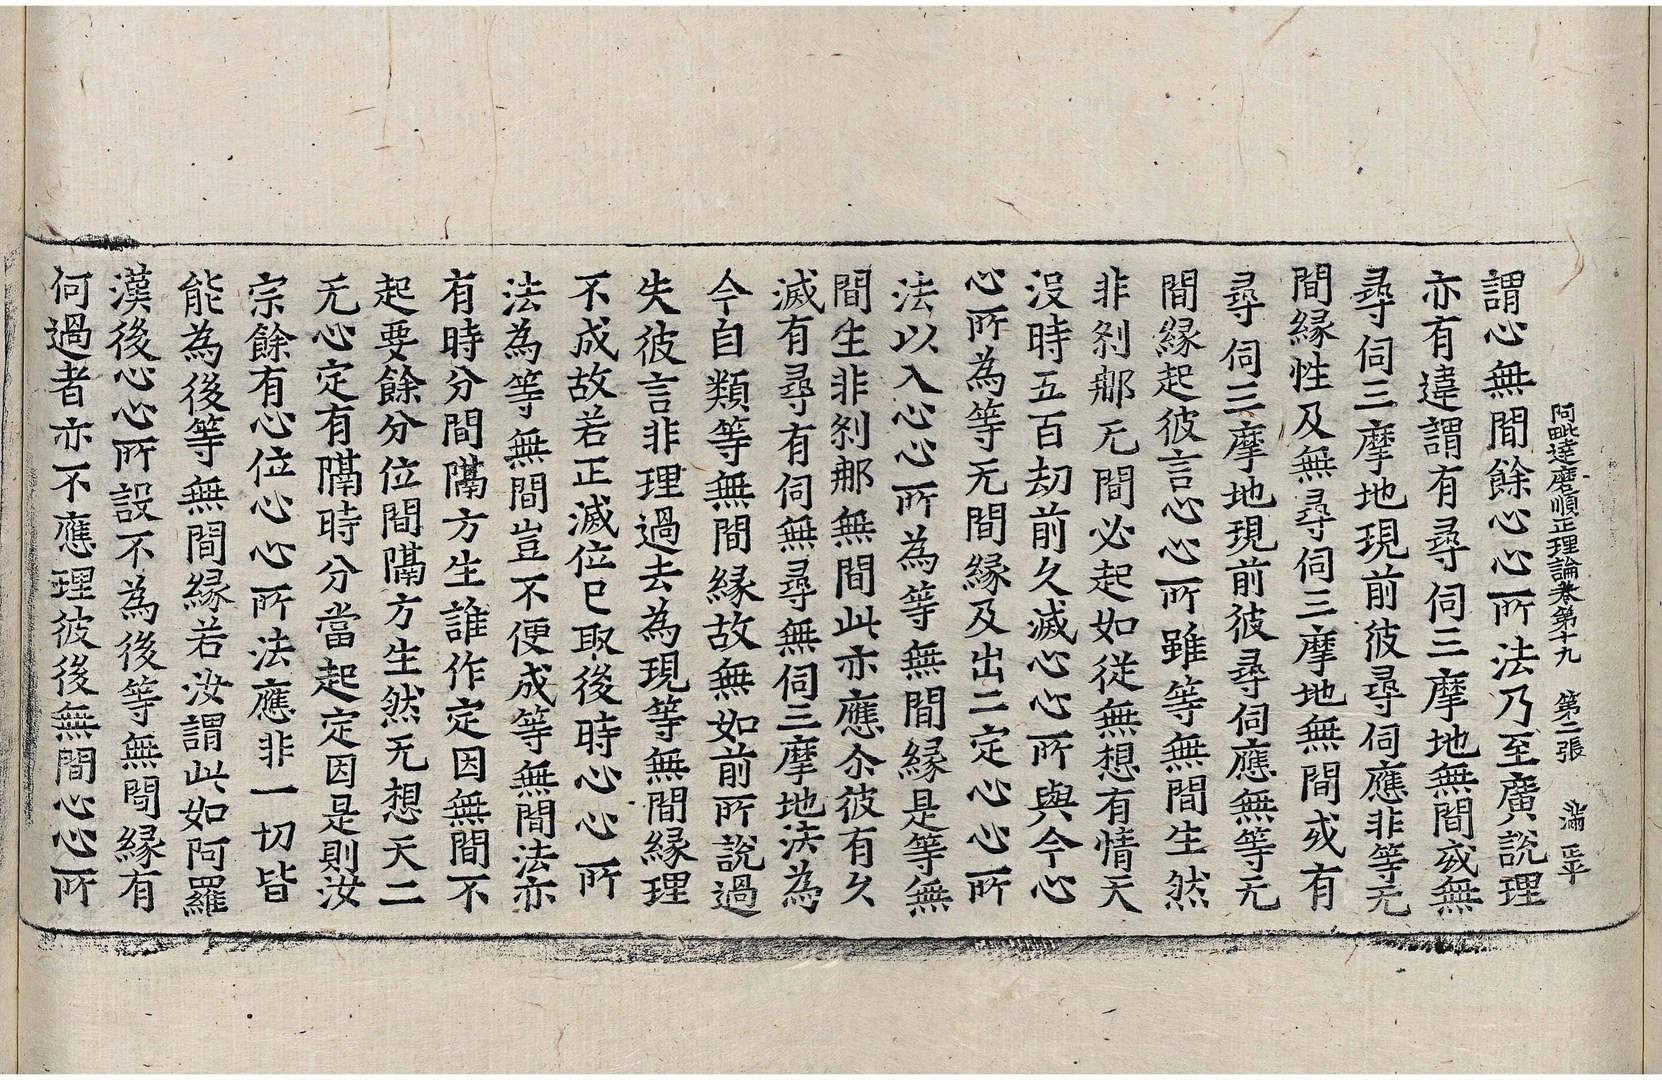 阿毗達磨順正理論卷第十九　第二張　滿　正平
謂心無間餘心心所法乃至廣說理
亦有違謂有尋伺三摩地無間或無
尋伺三摩地現前彼尋伺應非等无
間縁性及無尋伺三摩地無間或有
尋伺三摩地現前彼尋伺應無等无
間縁起彼言心心所雖等無間生然
非刹那无間必起如從無想有情天
没時五百劫前久滅心心所與今心
心所為等无間縁及出二定心心所
法以入心心所為等無間縁是等無
間生非刹那無間此亦應尒彼有久
滅有尋有伺無尋無伺三摩地法為
今自類等無間縁故無如前所說過
失彼言非理過去為現等無間縁理
不成故若正滅位巳取後時心心所
法為等無間豈不便成等無間法亦
有時分間隔方生誰作定因無間不
起要餘分位間隔方生然无想天二
无心定有隔時分當起定因是則汝
宗餘有心位心心所法應非一切皆
能為後等無間縁若汝謂此如阿羅
漢後心心所設不為後等無間縁有
何過者亦不應理彼後無間心心所